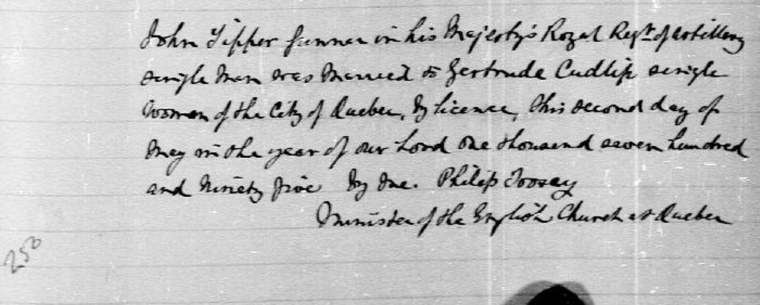 John Tipper Gunner in his Majesty's Royal Regt. of Artillery
single Man was Married to Gertrude Cudlip single
Woman of the City of Quebec, by licence, this second day of
May in the year of our Lord one thousand seven hundred
and Ninety five by me. Philip Toosey
Minister of the English Church at Quebec
250